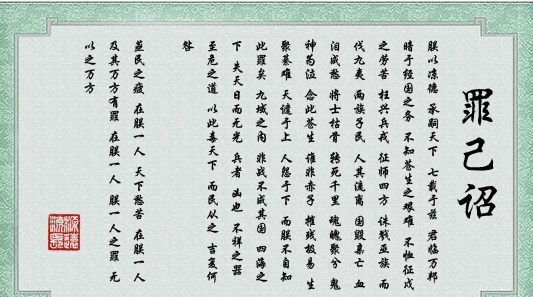 罪己诏
朕以凉德 承嗣天下 七载于兹 君临万邦
暗于经国之务 不知苍生之艰难 不恤征戍
之劳苦 枉兴兵戎 征师四方 诛戮亚族 而
伐九夷 两族子民 人其流离 国毁亲亡 血
泪成愁 将士枯骨 转死千里 魂魄聚兮 鬼
神为泣 念此苍生 谁非赤子 摧残极易 生
聚綦难 天谴于上 人怨于下 而朕不自知
此罪矣 九域之内 非战不成其国 四海之
下 失天日而无光 兵者 凶也 不祥之器
至危之道 以此毒天下 而民从之 吉复何
咎
蒸民之疲 在朕一人 天下愁苦 在朕一人
及其万方有罪 在朕一人 朕一人之罪 无
以之万方